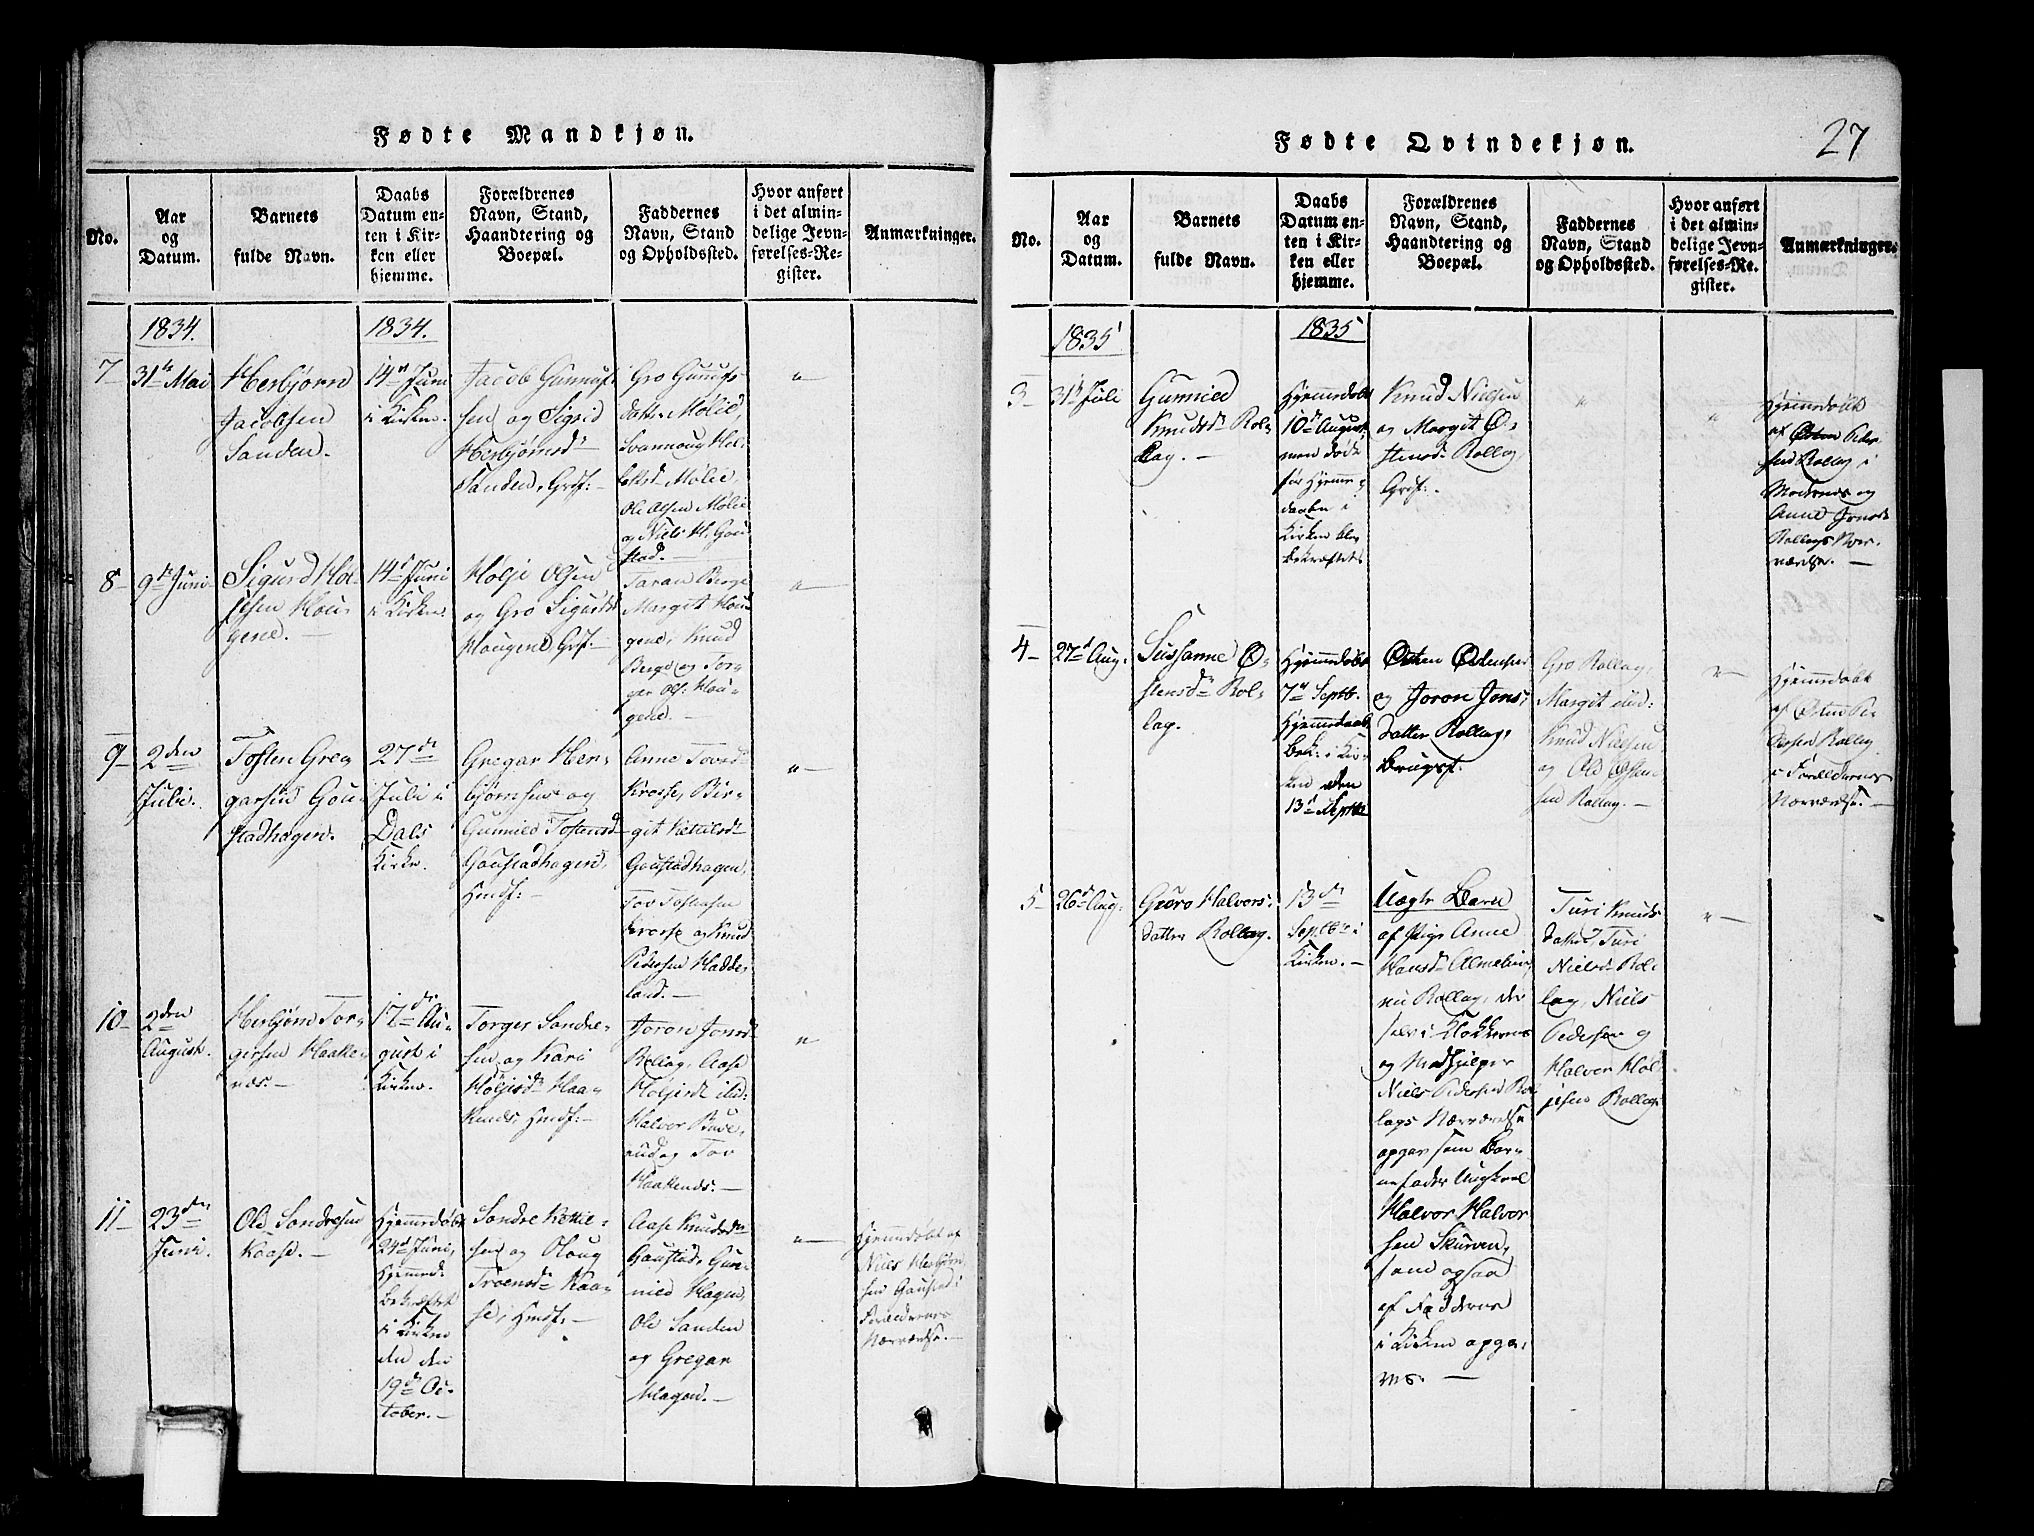 Fødte Mandkjøn.
No.
Aar
og
Datum.
Barnets
fulde Navn.
Daabs
Datum en-
ten i Kir-
ken eller
hjemme.
Forældrenes
Navn, Stand,
Haandtering og
Boepæl.
Faddernes
Navn, Stand
og Opholdssted.
Hvor anført
i det almin-
delige Jevn-
førelses-Re-
gister.
Anmærkninger.
1834.
1834.
7
31te Mai
Herbjørn
Jacobsen
Sanden.
14de Juni
i Kirken.
Jacob Gunnuf-
sen og Sigrid
Herbjørnsd
Sanden, Grdf:
Gro Gunufs
datter Mølie,
Svannoug Hel-
Mølie,
Ole Olsen Mølie
og Niels H. Gou-
stad.
"
8
9de Juni
Sigurd Høl-
jesen Hou-
gene.
14de Juni
i Kirken.
Hølje Olsen
og Gro Sigurdsd
Hougene Grdf:
Taran Berge
Margit Hou-
gene, Knud
Berge og Tor-
ger Ols: Hou-
gene.
"
9
2den
Julie.
Tosten Gre-
garsen Gou-
stadhagen.
27de
Juli i
Dals
Kirke.
Gregar Her-
bjørnsen og
Gunnild Tostensd
Goustadhagen,
Hmdf:
Anne Tovsd
Krosse, Bir-
git Kittilsd
Goustadhagen,
Tov Tostensen
Krosse og Knud
Pedersen Hadde-
land.
"
10
2den
August.
Herbjørn Tor-
gersen Haake-
næs.
17de Au-
gust i
Kirken.
Torger Sondre-
sen og Kari
Høljesd Haa-
kenæs, Hmdf:
Joron Jonsd
Rollag, Aase
Høljesd ibid:
Halvor Bues-
rud og Tov
Haakenæs.
"
11
23de
Juni.
Ole Sondresen
Kaase.
Hjemmedøbt
24de Juni,
Hjemmed:
bekræftet
i Kirken
den den
19de Oc-
tober.
Sondre Kittil-
sen og Oloug
Troensd Kaa-
se, Hmdf:
Aase Knudsd
Goustad, Gun-
nild Hagen,
Ole Sanden
og Gregar
Hagen.
"
Hjemmedøbt af
Niels Herbjørn-
sen Goustad i
Forældrenes
Nærværelse.
Fødte Qvindekjøn.
27
No.
Aar
og
Datum.
Barnets
fulde Navn.
Daabs
Datum en-
ten i Kir-
ken eller
hjemme.
Forældrenes
Navn, Stand,
Haandtering og
Boepæl.
Faddernes
Navn, Stand
og Opholdssted.
Hvor anført
i det almin-
delige Jevn-
førelses-Re-
gister.
Anmærkninger.
1835
1835
3
31te Juli
Gunnild
Knudsd Rol-
lag.
Hjemmedøbt
10de August,
men døde
før Hjemme-
daaben i
Kirken blev
bekræftet.
Knud Nielsen
og Margit Ø-
stensd Rollag,
Grdf:
"
"
Hjemmedøbt
af Østen Peder-
sen Rollag i
Moderens og
Anne Jonsd
Rollags Nær-
værelse.
4
27de Aug.
Sussanne Ø-
stensd Rol-
lag.
Hjemmedøbt
7de Septb.
Hjemmedaab
bek: i Kir-
ken den
13de Septbr
Østen Østensen
og Joron Jons-
datter Rollag,
Brugsf.
Gro Rollag,
Margit ibid:
Knud Nielsen
og Ole Østen-
sen Rollag.
"
Hjemmedøbt
af Østen Pe-
dersen Rollag
i Forældrenes
Nærværelse.
5
26de Aug:
Guro Halvors-
datter Rollag.
13de
Septbr i
Kirken.
Uægte Barn
af Pige Anne
Hansd Almelien,
nu Rollag, der
selv i Klokkerens
og Medhjelper
Niels Pedersen Rol-
lags Nærværelse
opgav som Bar-
nefader Ungkarl
Halvor Halvor-
sen Skurven,
som ogsaa
af Fadderne
i Kirken opga-
ves.
Turi Knuds-
datter, Turi
Nielsd Rol-
lag, Niels
Pedersen og
Halvor Høl-
jesen Rollag.
"